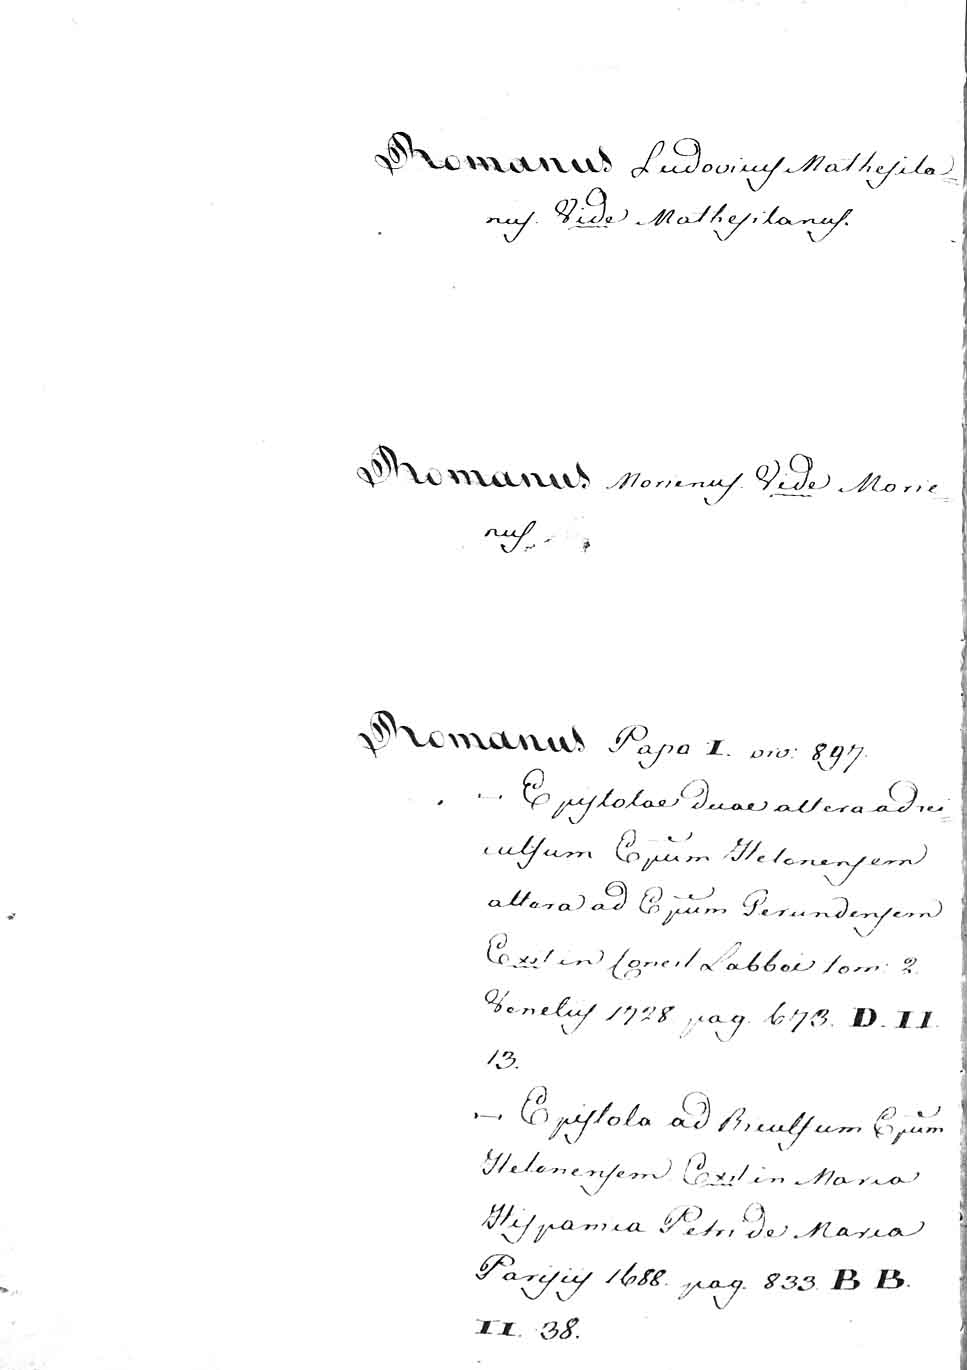 Romanus Ludovicus Mathesila=
nus. Vide Mathesilanus.
Romanus Morienus. Vide Morie=
nus.
Romanus Papa I. viv: 897.
— Epistolae duae altera ad Ri=
culsum Ep̃um Helenensem
altera ad Ep̃um Gerundensem
Extt in Concil Labbei tom: 2.
Venetiis 1728 pag. 673. D. II.
13.
— Epistola ad Riculsum Ep̃um
Helenensem Extt in Marca
Hispanica Petri de Marca
Parisiis 1688. pag. 833. B B.
II. 38.